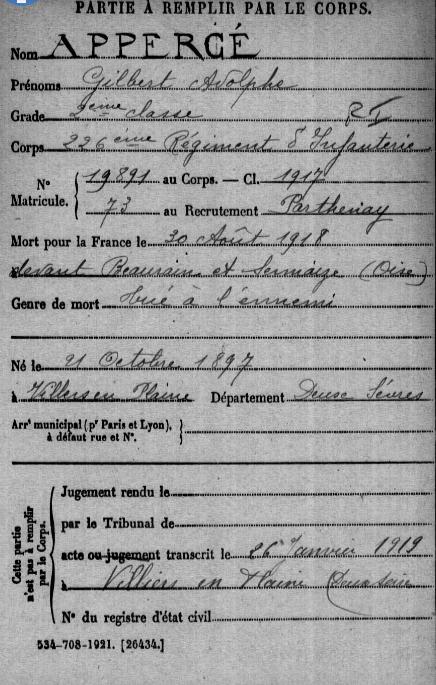 PARTIE À REMPLIR PAR LE CORPS.
Nom APPERGÉ
Prénoms Gilbert Adolphe
Grade 2eme classe R I
Corps 226 eme Régiment d'Infanterie
N° Matricule. 19891 au Corps. — Cl. 1917
73 au Recrutement Parthenay
Mort pour la France le 30 Août 1918
devant Beaurain et Sermaize (Oise)
Genre de mort tué à l'ennemi
Né le 21 Octobre 1897
à Villiers en Plaine Département Deux Sèvres
Arrt municipal (pr Paris et Lyon), à défaut rue et N°.
Cette partie n'est pas à remplir par le Corps.
Jugement rendu le
par le Tribunal de
acte ou jugement transcrit le 26 Janvier 1919
à Villiers en Plaine
N° du registre d'état civil
534-708-1921. [26434.]